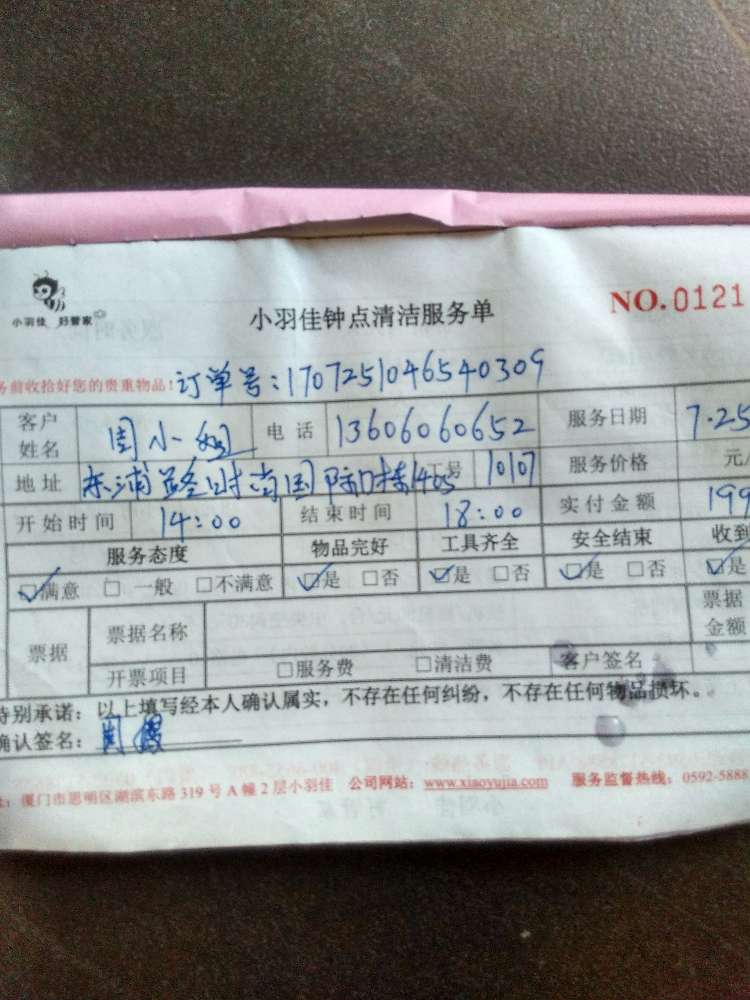 小羽佳 好管家
小羽佳钟点清洁服务单
NO.0121
务前收拾好您的贵重物品！订单号：170725104654030​9
客户姓名 周小姐 电话 13606060652 服务日期 7.25
地址 东浦路时尚国际1栋1405 工号 10107 服务价格 元/
开始时间 14:00 结束时间 18:00 实付金额 199
服务态度 物品完好 工具齐全 安全结束 收到
☑满意 □一般 □不满意 ☑是 □否 ☑是 □否 ☑是 □否 ☑是
票据 票据名称 票据金额
开票项目 □服务费 □清洁费 客户签名
特别承诺：以上填写经本人确认属实，不存在任何纠纷，不存在任何物品损坏。
确认签名：周
：厦门市思明区湖滨东路319号A幢2层小羽佳 公司网站：www.xiaoyujia.com 服务监督热线：0592-5888